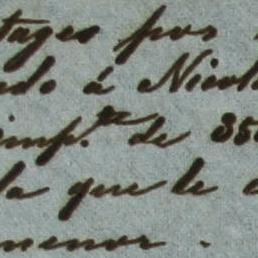 tages por
do á Nicol
imp.te de 35
la que le
menor .